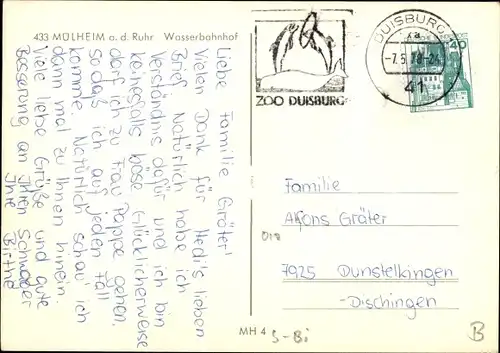 433 MÜLHEIM a. d. Ruhr Wasserbahnhof
Liebe Familie Gräter!
Vielen Dank für Hedi's lieben
Brief. Natürlich habe ich
Verständnis dafür und ich bin
keinesfalls böse. Glücklicherweise
darf ich zu Frau Pappe gehen.
so daß ich auf jeden Fall
komme. Natürlich schau ich
dann mal zu Ihnen hinein.
Viele liebe Grüße und gute
Besserung an Ihren Schwager
Ihre
ZOO DUISBURG
DUISBURG
41
40
Familie
Alfons Gräter
7925 Dunstelkingen
-Dischingen
MH 4
S-Bi
B